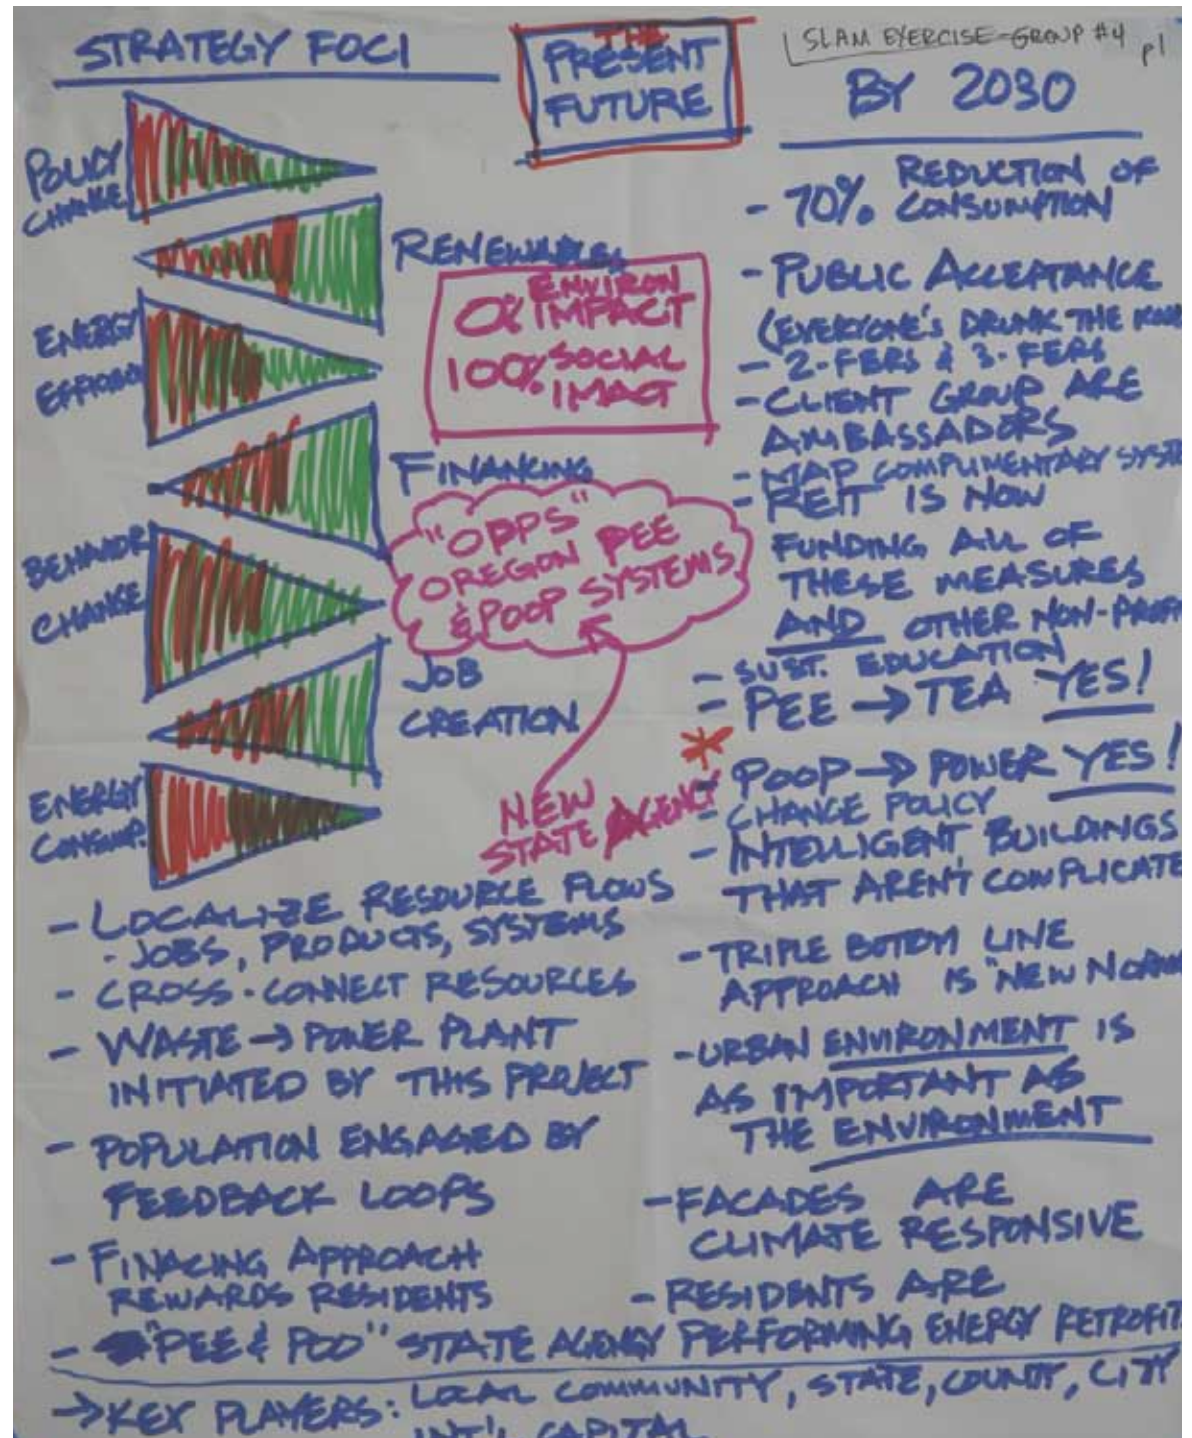 STRATEGY FOCI
THE
PRESENT
FUTURE
SLAM EXERCISE-GROUP #4 p1
BY 2030
POLICY
CHANGE
RENEWABLES
ENERGY
FINANCING
BEHAVIOR
CHANGE
JOB
CREATION
ENERGY
CONSUMP.
0% ENVIRON
IMPACT
100% SOCIAL
IMACT
"OPPS"
OREGON PEE
& POOP SYSTEMS
NEW
STATE AGENCY
- 70% REDUCTION OF
CONSUMPTION
- PUBLIC ACCEPTANCE
(EVERYONE'S DRUNK THE
- 2-FERS & 3-FERS
- CLIENT GROUP ARE
AMBASSADORS
- MAP COMPLIMENTARY SYSTE
- REIT IS NOW
FUNDING ALL OF
THESE MEASURES
AND OTHER NON-PROF
- SUST. EDUCATION
- PEE → TEA YES!
* - POOP → POWER YES!
- CHANGE POLICY
- INTELLIGENT BUILDINGS
THAT AREN'T COMPLICATE
- TRIPLE BOTTOM LINE
APPROACH IS "NEW NORMA
- URBAN ENVIRONMENT IS
AS IMPORTANT AS
THE ENVIRONMENT
- FACADES ARE
CLIMATE RESPONSIVE
- RESIDENTS ARE
PERFORMING ENERGY RETROFIT
- LOCALIZE RESOURCE FLOWS
- JOBS, PRODUCTS, SYSTEMS
- CROSS-CONNECT RESOURCES
- WASTE → POWER PLANT
INITIATED BY THIS PROJECT
- POPULATION ENGAGED BY
FEEDBACK LOOPS
- FINACING APPROACH
REWARDS RESIDENTS
- "PEE & POO" STATE AGENCY
→ KEY PLAYERS: LOCAL COMMUNITY, STATE, COUNTY, CITY
INT'L CAPITAL